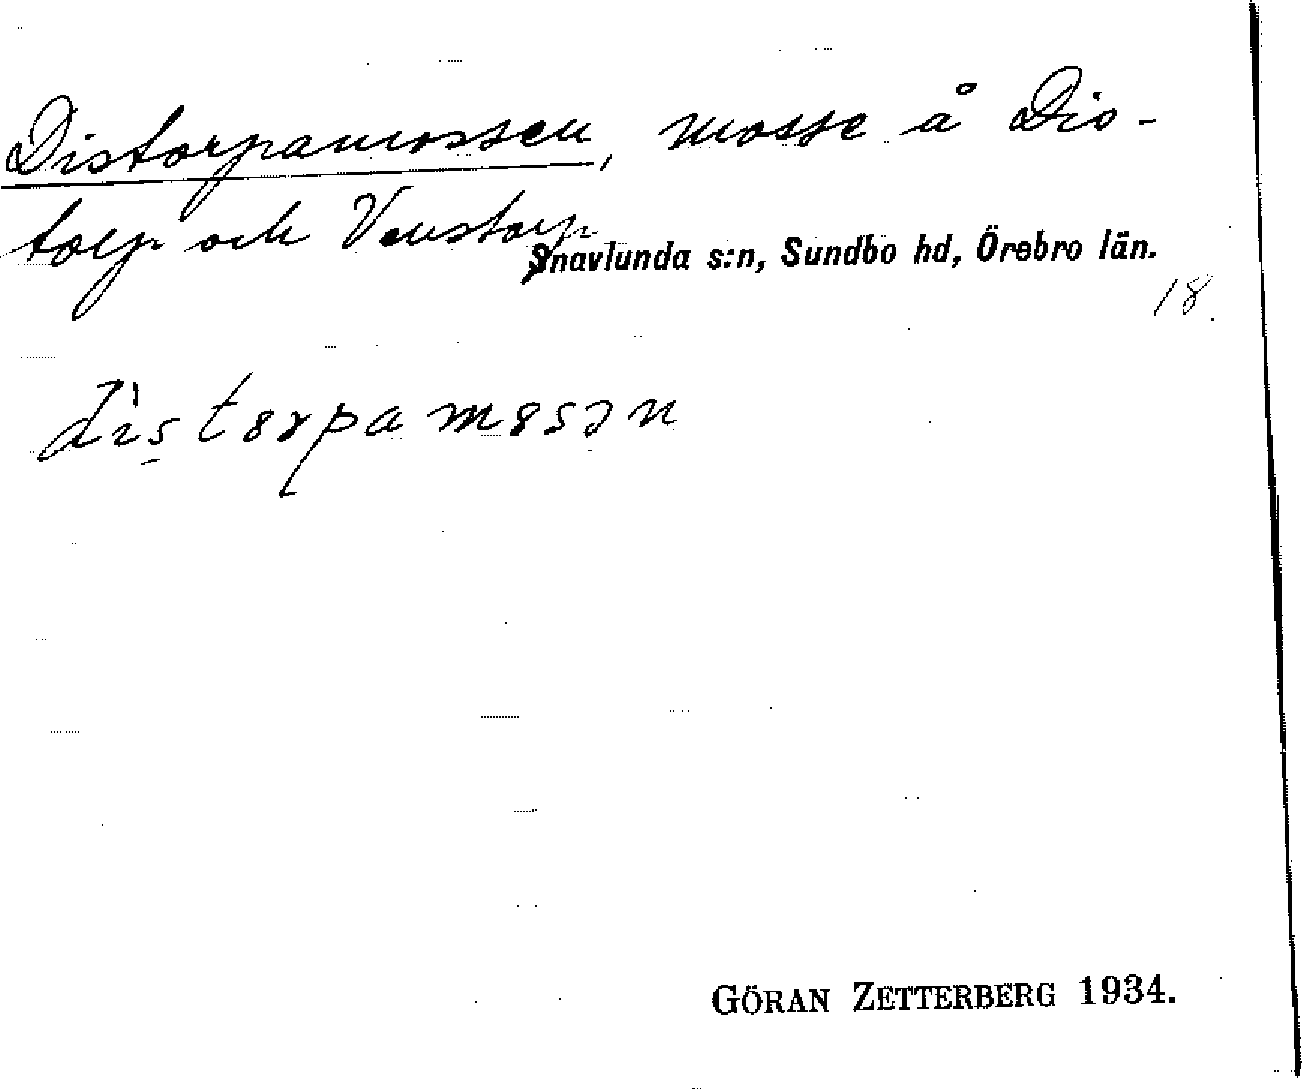 Distorpamossen, mosse å Dis-
torp och Venstorp
Snavlunda s:n, Sundbo hd, Örebro län.
18.
GÖRAN ZETTERBERG 1934.